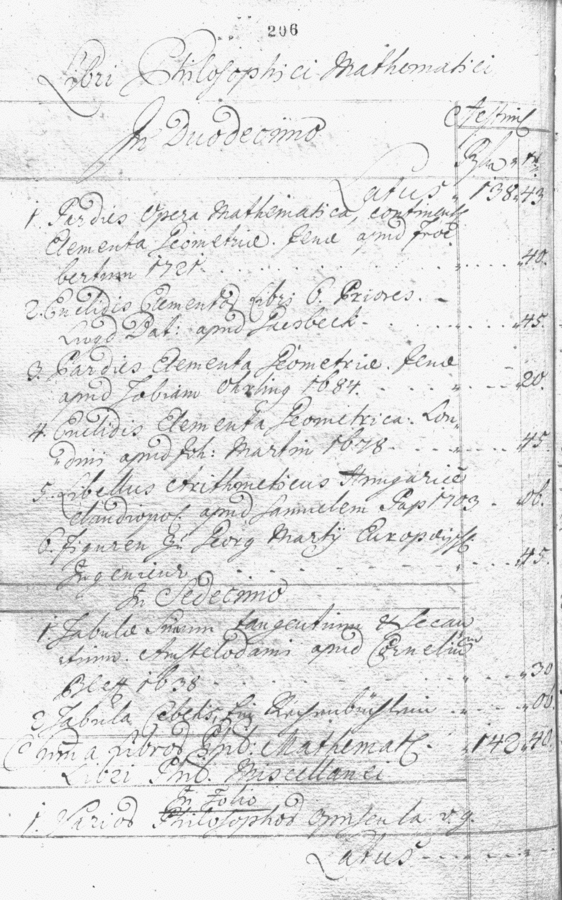 206
Libri Philosophici Mathematici
In Duodecimo
Aestim
Rfn xr
Latus 138. 43
1. Pardies Opera Mathematica, continens
Elementa Geometriae. Jenae apud Froe
bertum 1721. 40.
2. Euclidis Elementor Libri 6. Priores.
Lugd Bat: apud Gaesbeck. 45.
3. Pardies Elementa Geometriae. Jenae
apud Tobiam Ohrling 1684. 20.
4. Euclidis Elementa Geometrica. Lon-
dini apud Joh: Martin 1678. 45.
5. Libellus Arithmeticus Hungaricè
Claudiopol. apud Samuelem Pap 1703 06.
6. Figuren Zu Georg Martÿ Europäisch
Ingenieur 45.
In Sedecimo
1. Tabulae Sinum tangentium & Secan
tium. Amstelodami apud Cornelium
1638 30
2. Tabula Cebetis, Ein Rechenbüchlein 06
Summa Libror Phil: Mathemat. 142. 40.
Libri Phil. Miscellanei
In Folio
1. Varior Philosophor Opuscula v. g.
Latus